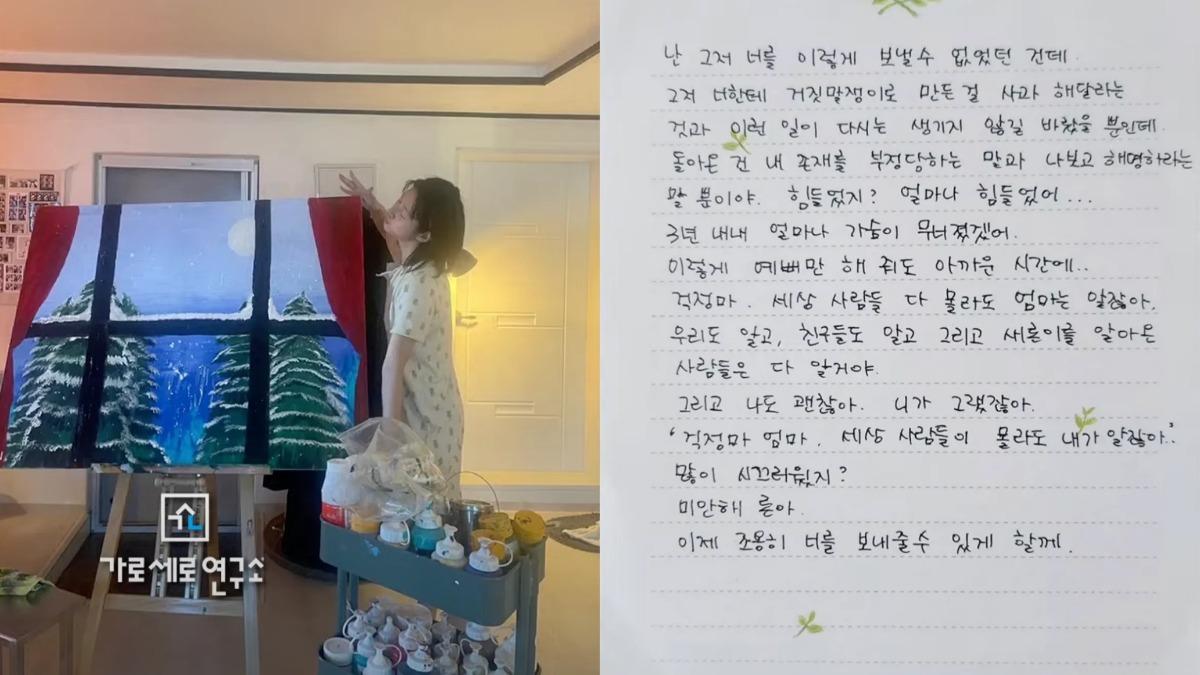 가로세로연구소
난 그저 너를 이렇게 보낼수 없었던 건데.
그저 너한테 거짓말쟁이로 만든걸 사과 해달라는
것과 이런 일이 다시는 생기지 않길 바랬을 뿐인데.
돌아온 건 내 존재를 부정당하는 말과 나보고 해명하라는
말 뿐이야. 힘들었지? 얼마나 힘들었어...
3년 내내 얼마나 가슴이 무너졌겠어.
이렇게 예뻐만 해 줘도 아까운 시간에..
걱정마. 세상 사람들 다 몰라도 엄마는 알잖아.
우리도 알고, 친구들도 알고 그리고 새론이를 알아온
사람들은 다 알거야.
그리고 나도 괜찮아. 니가 그랬잖아.
'걱정마 엄마. 세상 사람들이 몰라도 내가 알잖아.'
많이 시끄러웠지?
미안해 론아.
이제 조용히 너를 보내줄수 있게 할께.